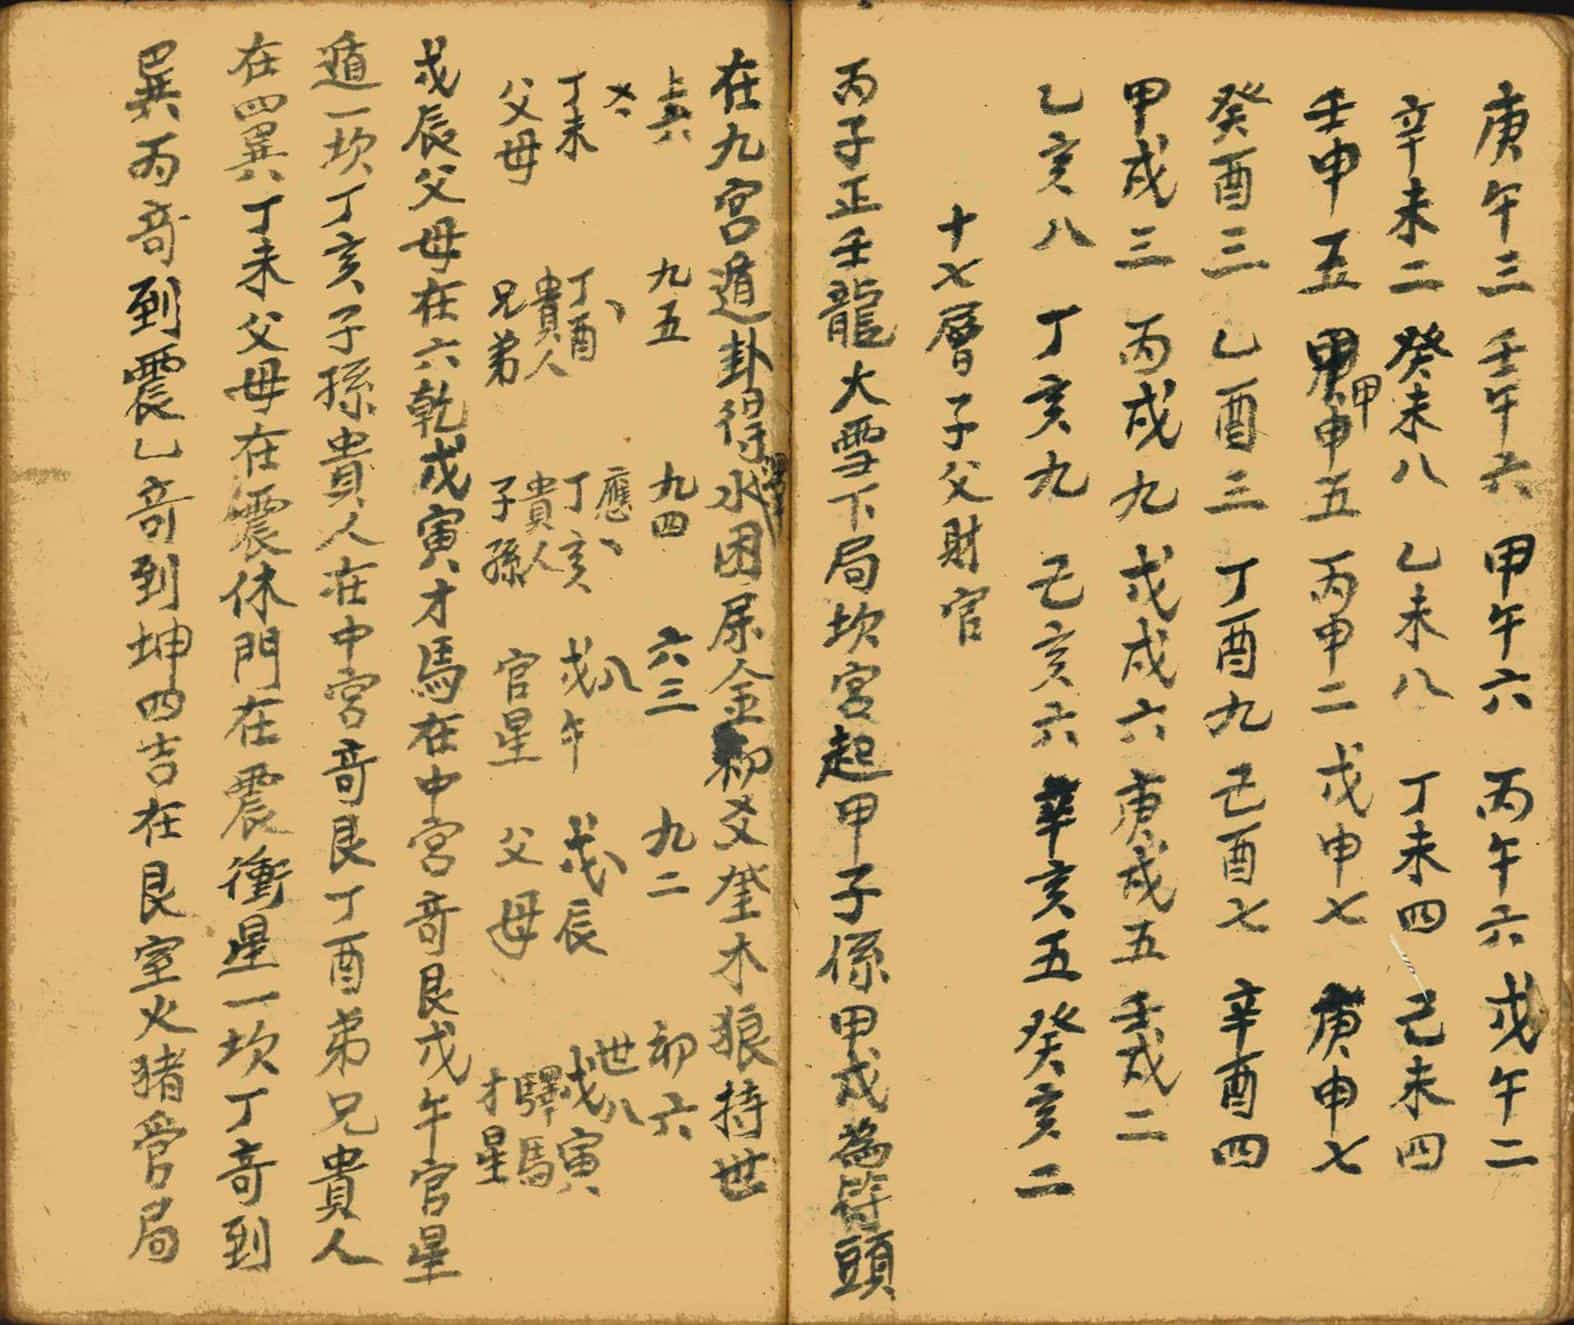 庚午三 壬午六 甲午六 丙午六 戊午二
辛未二 癸未八 乙未八 丁未四 己未四
壬申五 甲申五 丙申二 戊申七 庚申七
癸酉三 乙酉三 丁酉九 己酉七 辛酉四
甲戌三 丙戌九 戊戌六 庚戌五 壬戌二
乙亥八 丁亥九 己亥六 辛亥五 癸亥二
十七層子父財官
丙子正壬龍大雪下局坎宮起甲子係甲戌為符頭
在九宮遁卦得水困屬金初爻奎木狼持世
上六 九五 九四 六三 九二 初六
丁未 丁酉 應 丁亥 戊午 戊辰 世 戊寅
父母 貴人 兄弟 貴人 子孫 官星 父母 驛馬 才星
戊辰父母在六乾戊寅才馬在中宮奇艮戊午官星
遁一坎丁亥子孫貴人在中宮奇艮丁酉弟兄貴人
在四巽丁未父母在震休門在震衝星一坎丁奇到
巽丙奇到震乙奇到坤四吉在艮室火猪管局